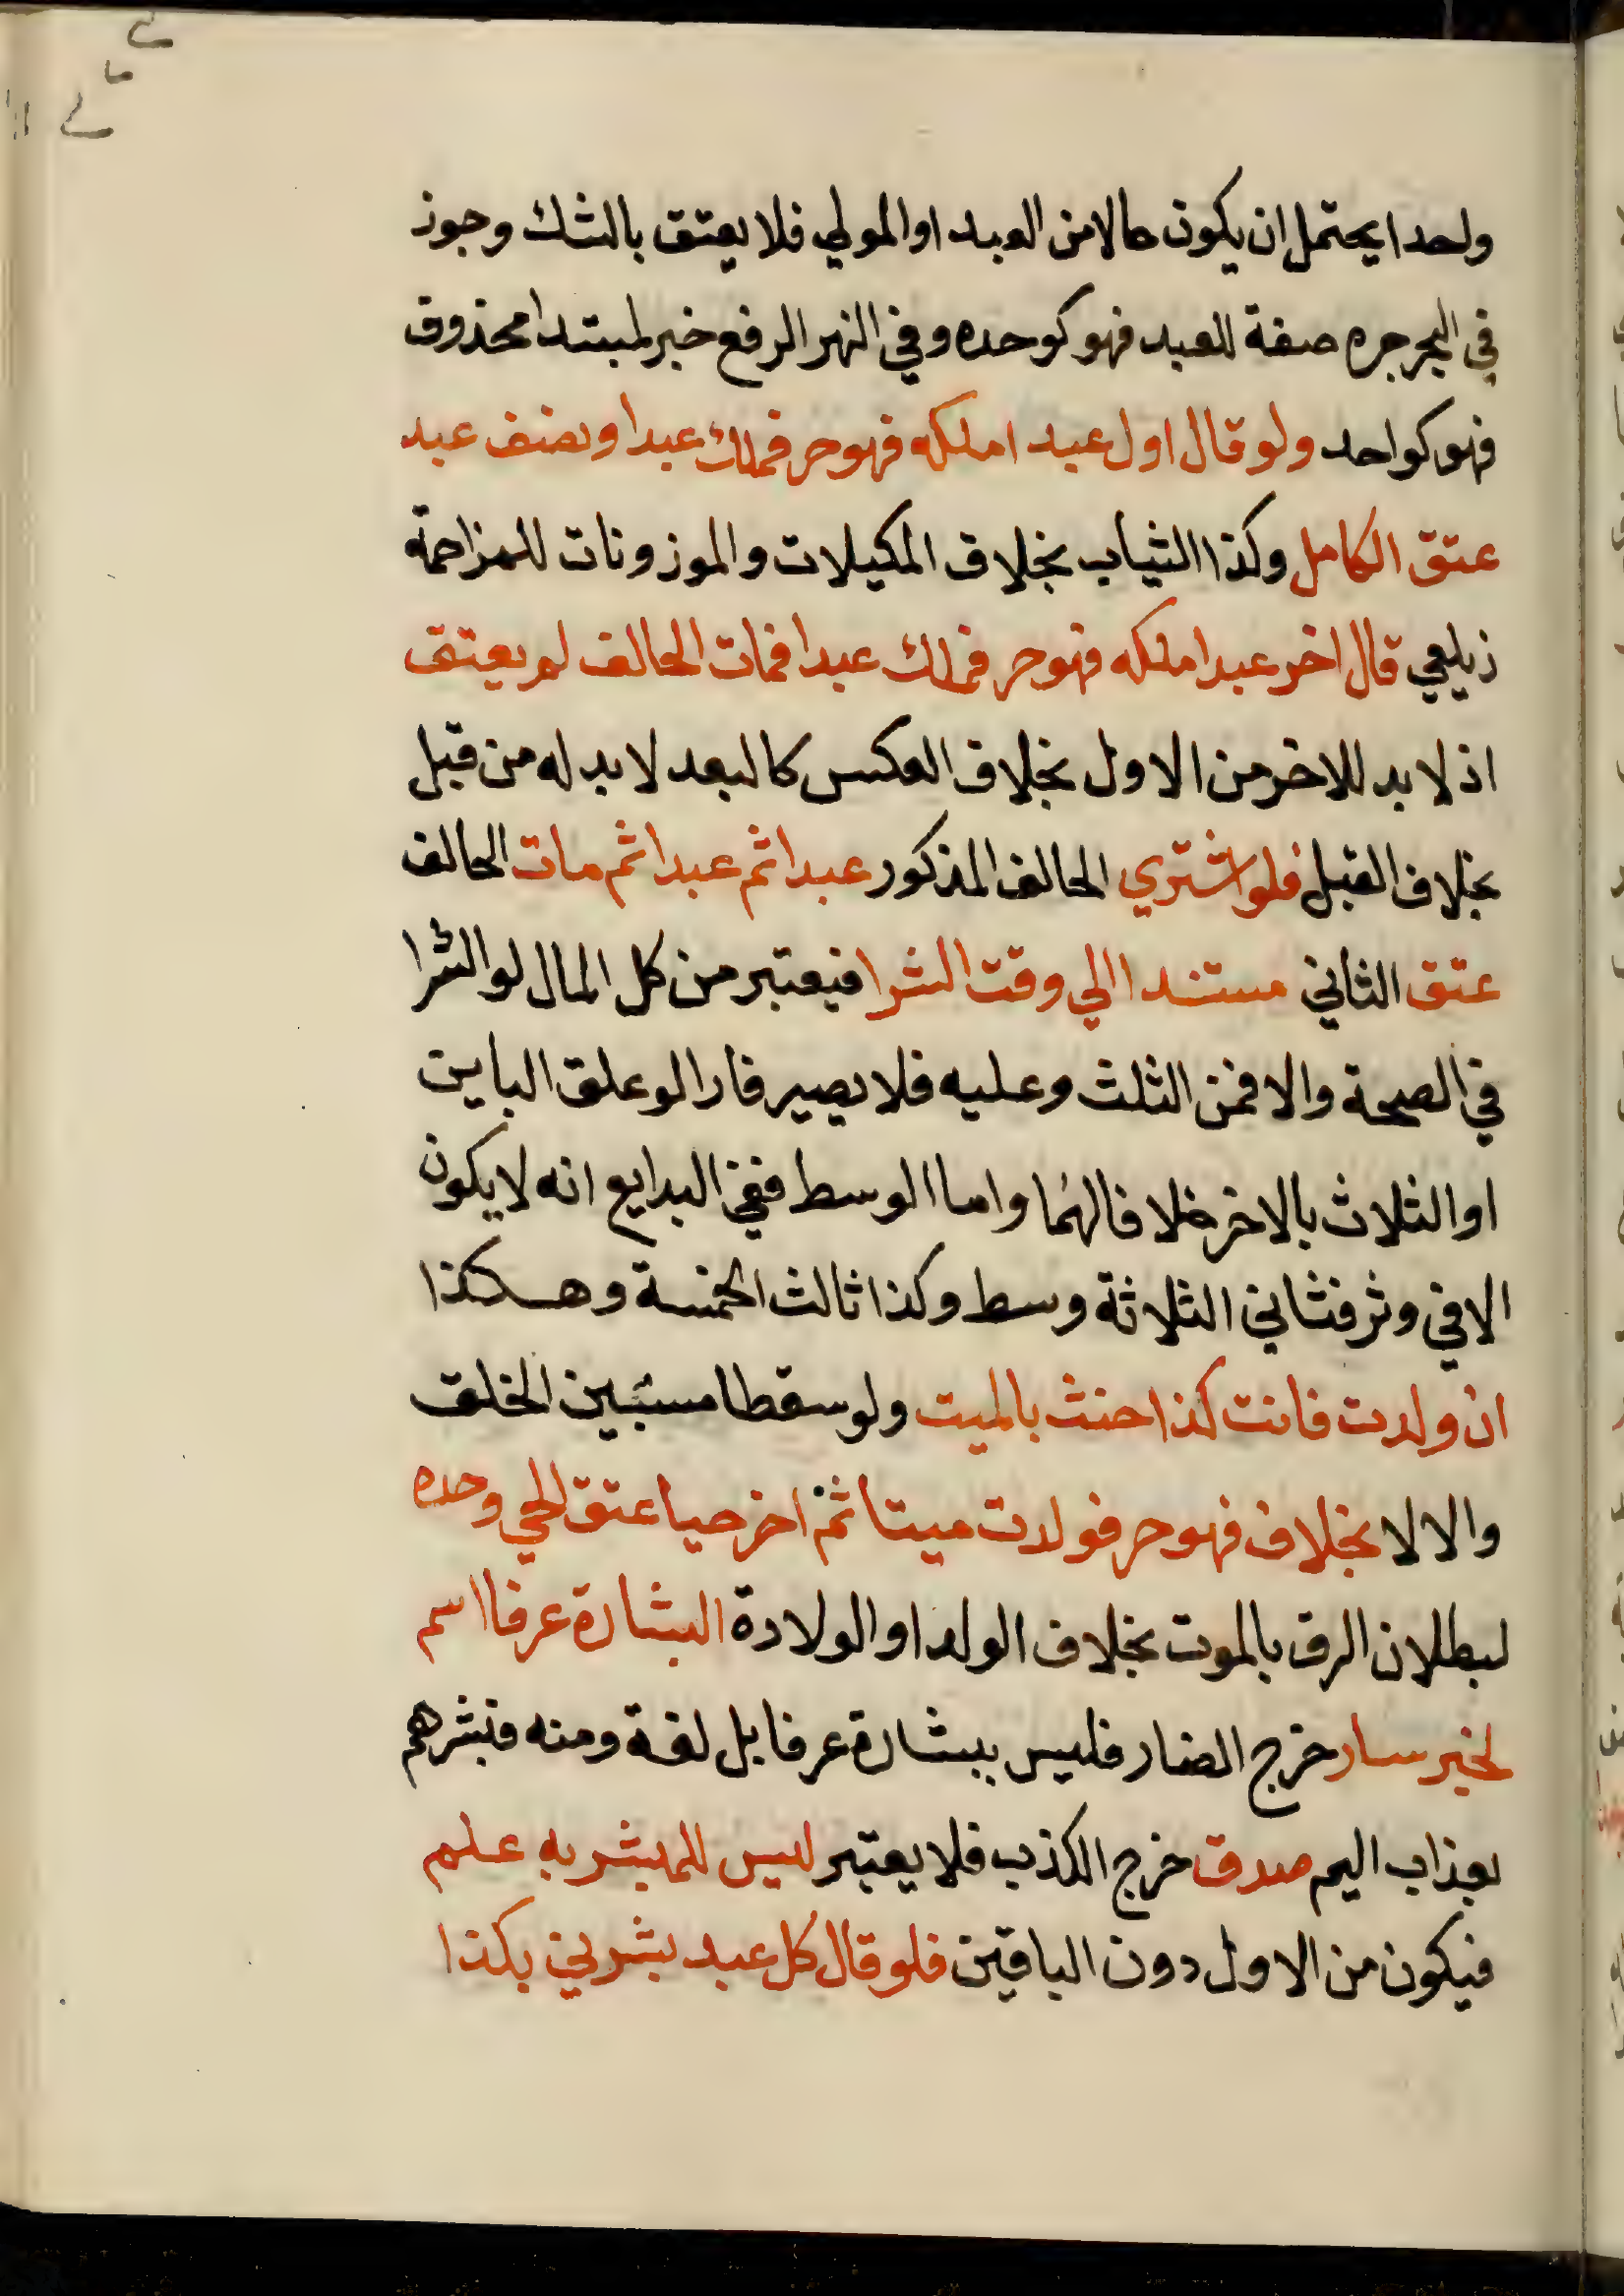 واحدا يحتمل ان يكون حالا من العبد او المولي فلا يعتق بالشك وجوز
في البحر جره صفة للعبد فهو كوحده وفي النهر الرفع خبر لمبتدا محذوف
فهو كواحد ولو قال اول عبد املكه فهو حر فملك عبدا ونصف عبد
عتق الكامل وكذا الثياب بخلاف المكيلات والموزونات للمزاحمة
زيلعي قال اخر عبد املكه فهو حر فملك عبدا فمات الحالف لم يعتق
اذ لا بد للاخر من الاول بخلاف العكس كالبعد لا بد له من قبل
بخلاف القبل فلو اشتري الحالف المذكور عبدا ثم عبدا ثم مات الحالف
عتق الثاني مستندا الي وقت الشرا فيعتبر من كل المال لو الشرا
في الصحة والا فمن الثلث وعليه فلا يصير فارا لو علق الباين
او الثلاث بالاخر خلافا لهما واما الوسط ففي البدايع انه لا يكون
الا في وثر فثاني الثلاثة وسط وكذا ثالث الخمسة وهكذا
ان ولدت فانت كذا حنث بالميت ولو سقطا مستبين الخلق
والا لا بخلاف فهو حر فولدت ميتا ثم اخر حيا عتق الحي وحده
لبطلان الرق بالموت بخلاف الولد او الولادة البشارة عرفا اسم
لخبر سار خرج الضار فليس ببشارة عرفا بل لغة ومنه فبشرهم
بعذاب اليم صدق خرج الكذب فلا يعتبر ليس للمبشر به علم
فيكون من الاول دون الباقين فلو قال كل عبد بشرني بكذا